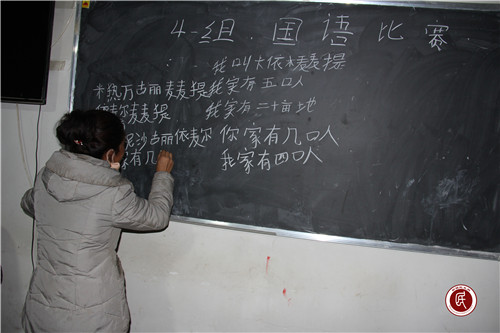 4-组.国语比赛
我叫大依木麦麦提
米热万古丽麦麦提我家有五口人
麦尔麦麦提 我家有二十亩地
尼沙古丽依麦尔 你家有几口人
家有几 我家有四口人